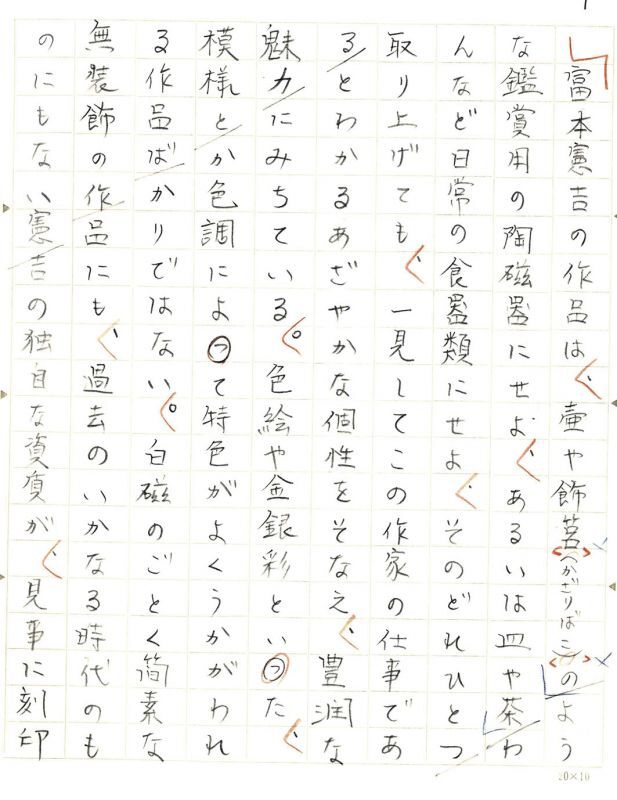 富本憲吉の作品は、壷や飾筥(かざりばこ)のよう
な鑑賞用の陶磁器にせよ、あるいは皿や茶わ
んなど日常の食器類にせよ、そのどれひとつ
取り上げても、一見してこの作家の仕事であ
るとわかるあざやかな個性をそなえ、豊潤な
魅力にみちている。色絵や金銀彩といった、
模様とか色調によって特色がよくうかがわれ
る作品ばかりではない。白磁のごとく簡素な
無装飾の作品にも、過去のいかなる時代のも
のにもない憲吉の独自な資質が、見事に刻印
20×10